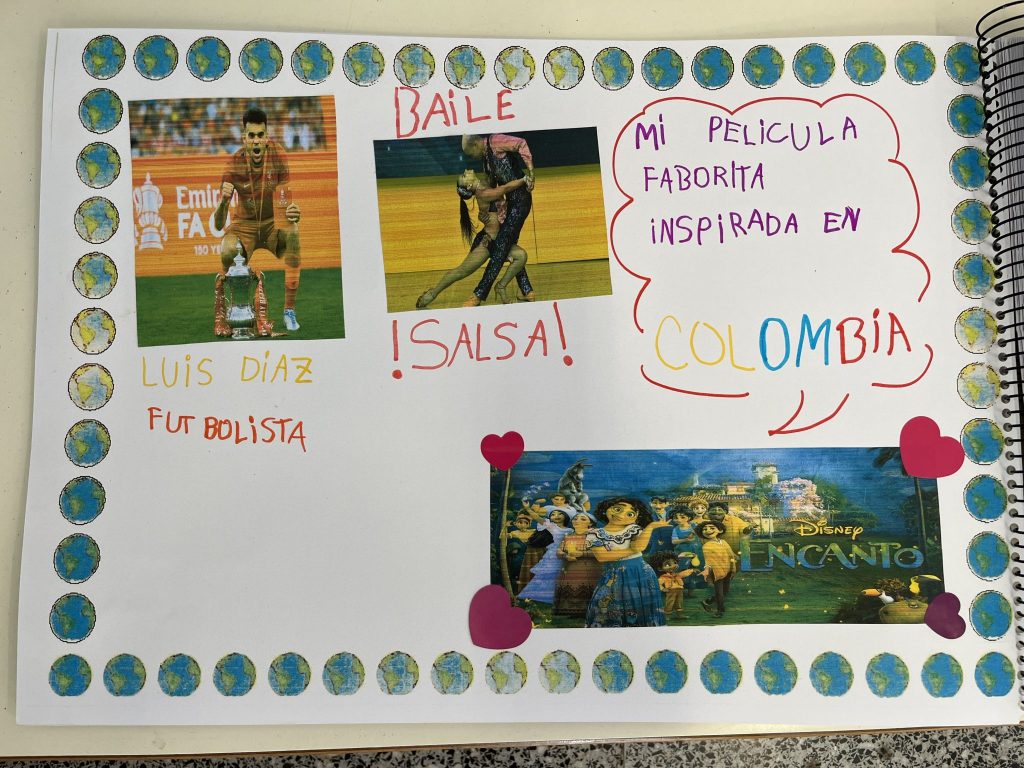 Emir
FA C
150 YE
LUIS DÍAZ
FUTBOLISTA
BAILE
!SALSA!
MI PELICULA
FABORITA
INSPIRADA EN
COLOMBIA
DISNEY
ENCANTO